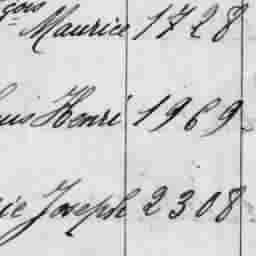 çois
Maurice 1728
uis Henri 1969
ie Joseph 2308